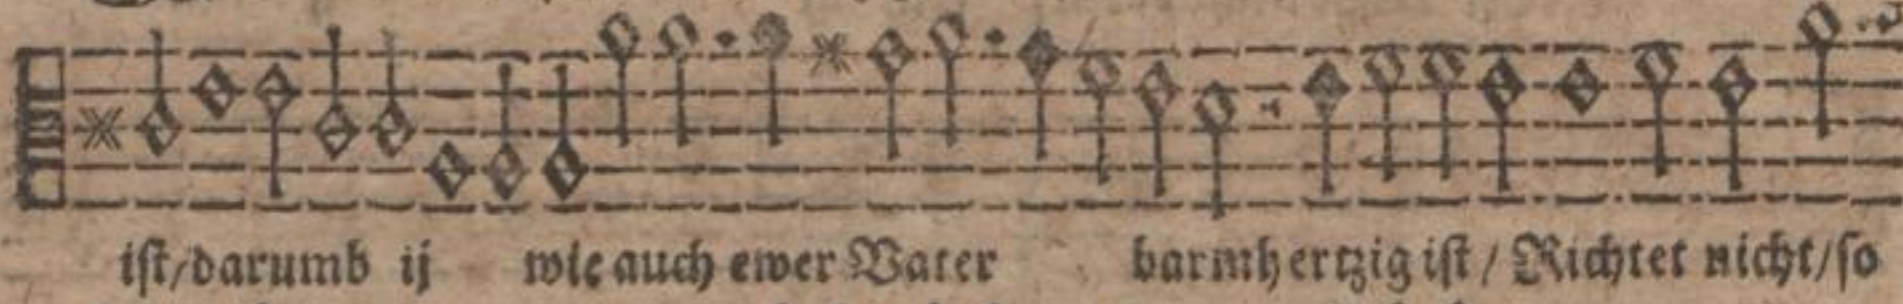 ist/darumb ij wie auch ewer Vater barmhertzig ist / Richtet nicht/so